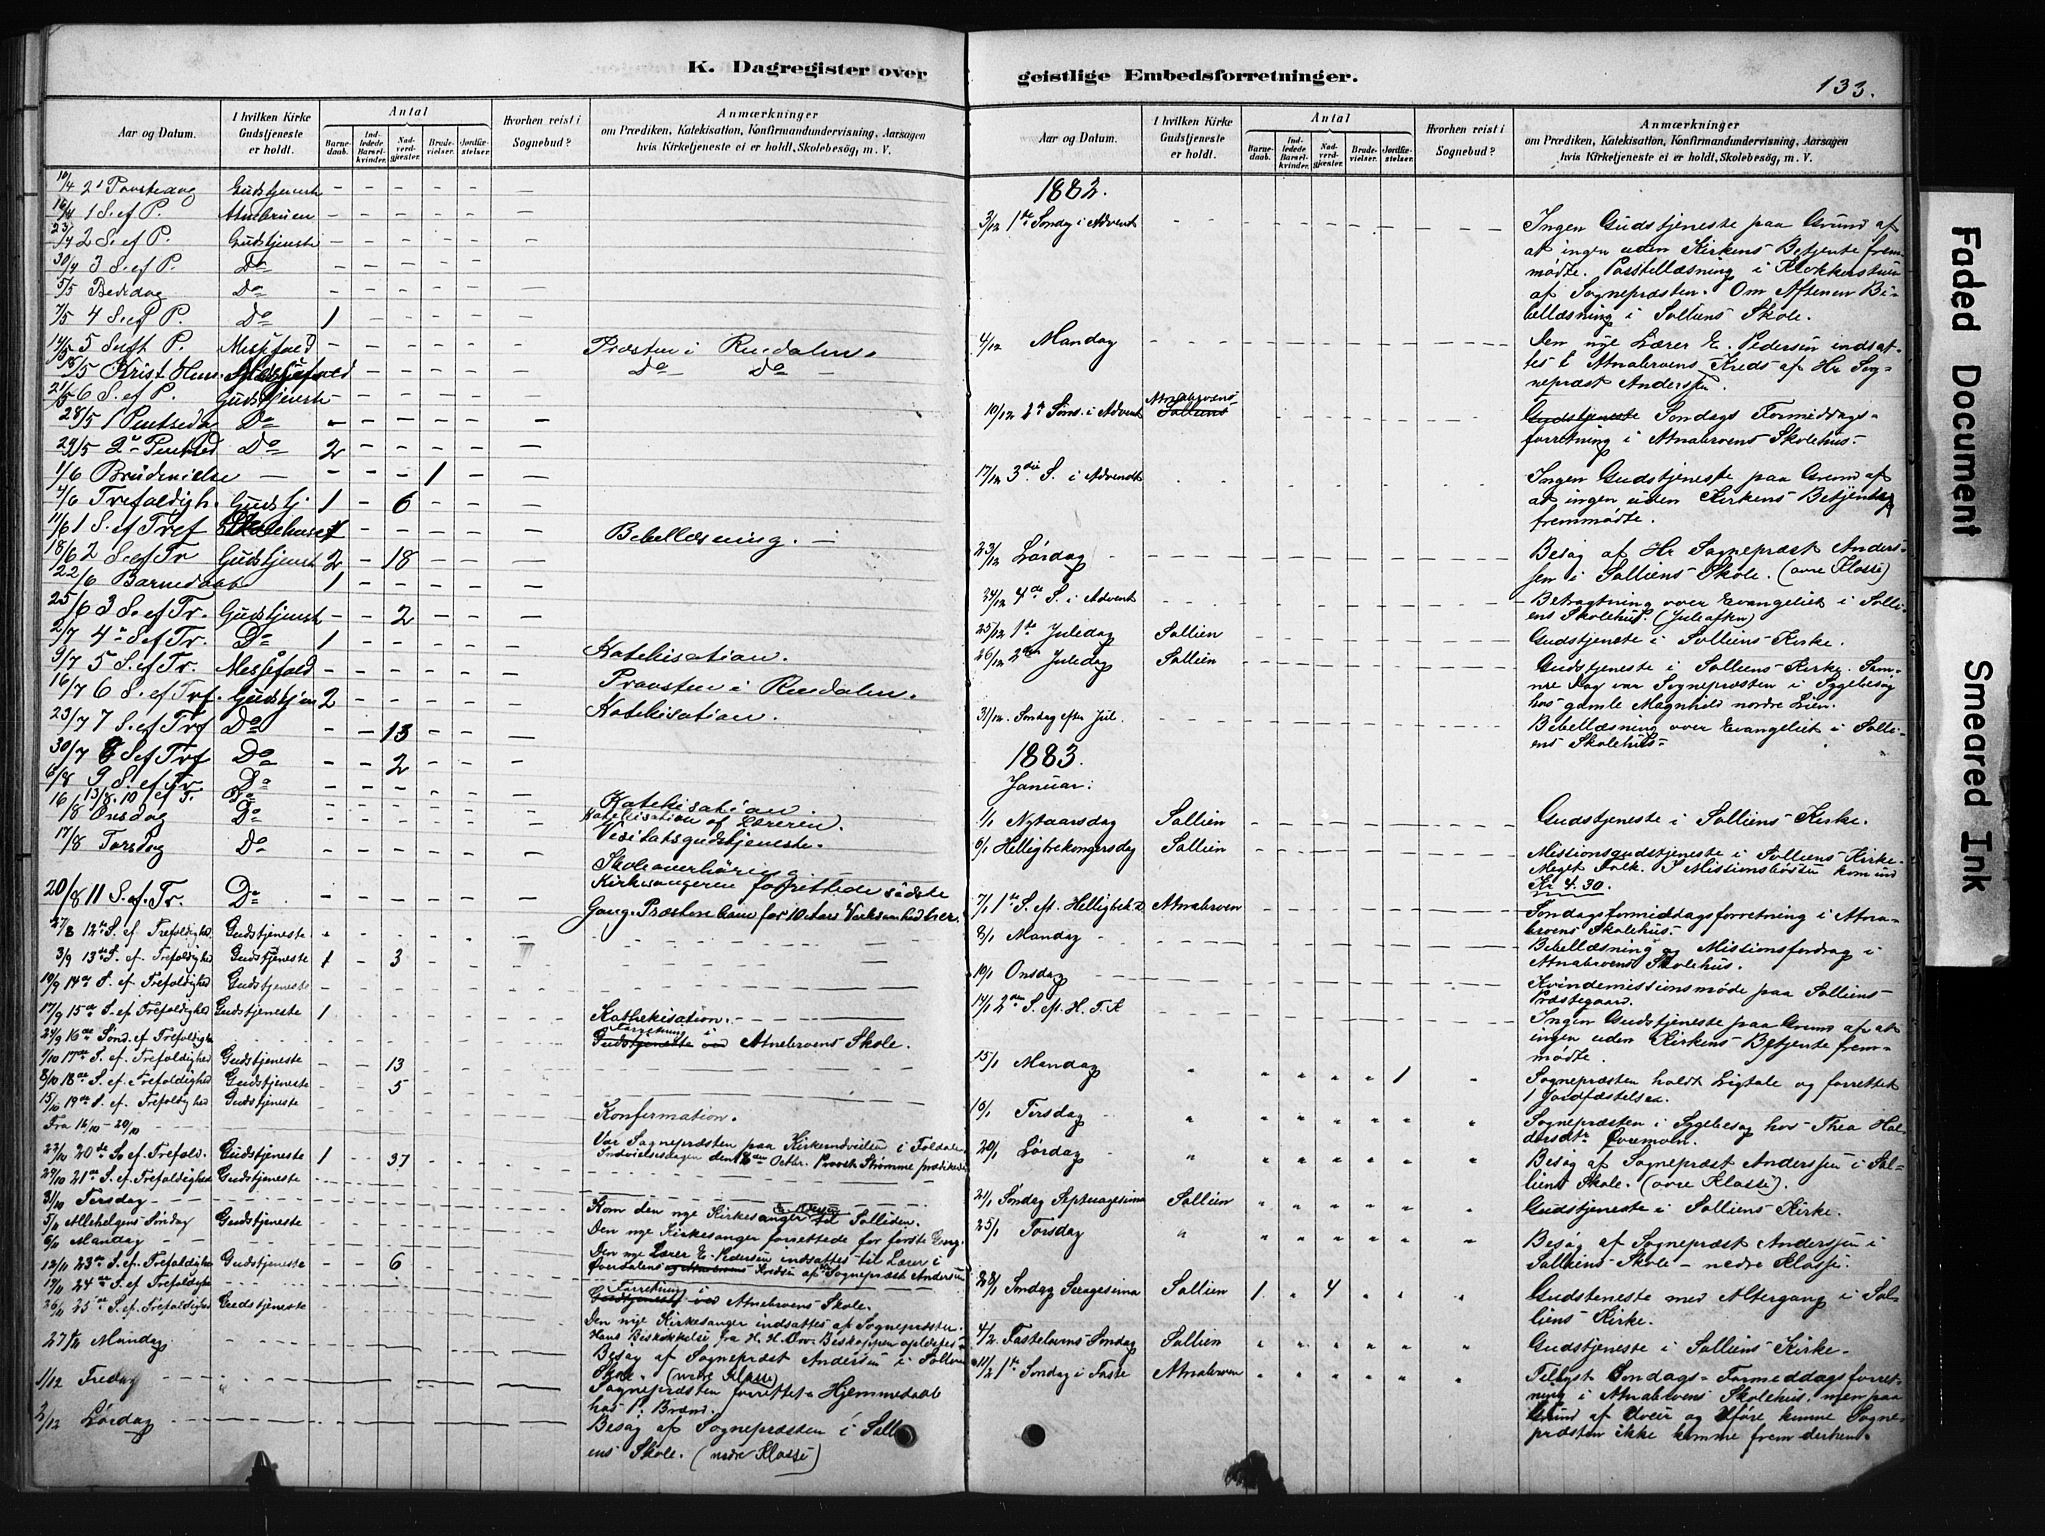 K. Dagregister over
Aar og Datum.
I hvilken Kirke Gudstjeneste er holdt.
Antal
Barnedaab.
Indledede Barselkvinder.
Nadverdgjester.
Brudevielser.
Jordfæstelser.
Hvorhen reist i Sognebud?
Anmærkninger
om Prædiken, Katekisation, Konfirmandundervisning, Aarsagen
hvis Kirketjeneste ei er holdt, Skolebesøg, m. V.
10/4 2' Paaskedag Gudstjenst - - - - - -
16/4 1 S. ef P. Atnebruen - - - - - -
23/4 2 S. ef P. Gudstjenste - - - - - -
30/4 3 S. ef P. Do - - - - - -
5/5 Bededag Do - - - - - -
7/5 4 S. ef P. Do 1 - - - - -
14/5 5 S. eft P. Messefald - - - - - - Præsten i Rendalen.
18/5 Krist Him. Messefald - - - - - - Do Do -
21/5 6 S. ef P. Gudstjenste - - - - - -
28/5 1 Pintsedag Do - - - - - -
29/5 2n Pintsed Do 2 - - - - -
1/6 Brudevielse - - - - 1 - -
4/6 Trefoldigh. Gudstj 1 - 6 - - -
11/6 1 S. ef Tref Skolehuset - - - - - Bebellæsning. -
18/6 2 S. ef Tr Gudstjenst 2 - 18 - - -
22/6 Barnedaab 1 - - - - -
25/6 3 S. ef Tr. Gudstjenst - - 2 - - -
2/7 4n S. ef Tr. Do 1 - - - - -
9/7 5 S. ef Tr. Messefald - - - - - - Katekisation.
16/7 6 S. ef Trf. Gudstjen 2 - - - - - Præsten i Rendalen.
23/7 7 S. ef Trf Do - - 13 - - - Katekisation.
30/7 8 S. ef Trf Do - - 2 - - -
6/8 9 S. ef Tr. Do - - - - - -
13/8 10 ef T. Do
16/8 Onsdag Do - - - - - - Katekisation.
Katekisation af Læreren.
17/8 Torsdag Do - - - - - - Visitatsgudstjeneste.
Skoleoverhöring.
20/8 11 S. ef. Tr. Do - - - - - - Kirkesangeren forrettede sidste
Gang. Præsten
27/8 12te S. ef Trefoldighed Gudstjeneste
3/9 13de S. ef. Trefoldighed Gudstjeneste 1 - 3 - - -
10/9 14de S. ef Trefoldighed Gudstjeneste
17/9 15de S. ef Trefoldighed Gudstjeneste 1 - - - - - Kathekisation.
24/9 16de Sönd. ef Trefoldighed Forretning i
Gudstjeneste ved Atnebroens Skole.
1/10 17de S. ef. Trefoldighed Gudstjeneste - - 13 - -
8/10 18de S. ef. Trefoldighed Gudstjeneste - - 5 - -
15/10 19de S. ef. Trefoldighed Gudstjeneste Konfirmation.
Fra 16/10 - 20/10 Var Sognepræsten paa Kirkeindvielse i Foldalen
Indvielsesdagen den 18de Octbr. Provst Strømme prædikede
22/10 20de S. ef Trefold. Gudstjeneste 1 - 37 - - -
29/10 21de S. ef. Trefoldighed Gudstjeneste
31/10 Tirsdag - - Kom den nye Kirkesanger til Solliden.
5/11 Allehelgens Søndag Gudstjeneste Den nye Kirkesanger forrettede for første Gang.
6/11 Mandag Den nye Lærer E. Pedersen indsattes til Lærer i
Øverdalens Kreds af Sognepræst Andersen
12/11 23de S. ef Trefoldighed Gudstjeneste - - 6 - -
19/11 24de S. ef Trefoldighed Forretning i
Gudstjeneste ved Atnebroens Skole.
26/11 25de S. ef. Trefoldighed Gudstjeneste Den nye Kirkesanger indsattes af Sognepræsten.
Hans Biskokkelse fra H. H. Hr. Biskoppen
27/11 Mandag Besøg af Sognepræst Andersen i Sollien
Skole. (nedre Klasse)
1/12 Fredag Sognepræsten forrettet Hjemmedaab
hos P. Brænd.
2/12 Lördag Besøg af Sognepræsten i Solli
ens Skole. (nedre Klasse)
geistlige Embedsforretninger.
133.
Aar og Datum.
I hvilken Kirke Gudstjeneste er holdt.
Antal
Barnedaab.
Indledede Barselkvinder.
Nadverdgjester.
Brudevielser.
Jordfæstelser.
Hvorhen reist i Sognebud?
Anmærkninger
om Prædiken, Katekisation, Konfirmandundervisning, Aarsagen
hvis Kirketjeneste ei er holdt, Skolebesøg, m. V.
1882.
3/12 1ste Søndag i Advent Ingen Gudstjeneste paa Grund af
at ingen uden Kirkens Betjente frem-
mødte. Postillæsning i Klokkerstuen
af Sognepræsten. Om Aftenen Bi-
bellæsning i Solliens Skole.
4/12 Mandag Den nye Lærer E. Pedersen indsat-
tes i Atnabroens Kreds af Hr Sog-
nepræst Andersen.
10/12 2de Sønd. i Advent Atnabroens
Solliens Gudstjeneste Søndags Formiddags-
forretning i Atnabroens Skolehus-
17/12 3die S. i Advendt Ingen Gudstjeneste paa Grund af
at ingen uden Kirkens Betjente
fremmødte.
23/12 Lördag Besøg af Hr Sognepræst Anders-
sen i Solliens Skole. (øvre Klasse)
24/12 4de S. i Advent Betragtning over Evangeliet i Solli-
ens Skolehus. (Juleaften)
25/12 1ste Juledag Sollien Gudstjeneste i Solliens Kirke.
26/12 2den Juledag Sollien Gudstjeneste i Solliens Kirke. Sam-
me Dag var Sognepræsten i Sygebesøg
hos gamle Magnhild nordre Lien.
31/12. Søndag efter Jul. Bebellæsning over Evangeliet i Solli-
ens Skolehus-
1883.
Januar:
1/1 Nytaarsdag Sollien Gudstjeneste i Solliens Kirke.
6/1 Helligtrekongersdag Sollien Missionsgudstjeneste i Solliens Kirke.
Meget Folk. I Missionsbössen kom ind
Kr 4.30.
7/1 1ste S. ef. Helligtrek.d. Atnabroen Søndagsformiddagsforretning i Atna-
broens Skolehus-
8/1 Mandag Bebellæsning og Missionsfordrag i
Atnabroens Skolehus.
10/1 Onsdag Kvindemissionsmøde paa Solliens
Præstegaard.
14/1 2den S. eft. H. T. K Ingen Gudstjeneste paa Grund af at
ingen uden Kirkens Betjente frem-
mødte.
15/1 Mandag 1 Sognepræsten holdt Ligtale og forrettet
1 Jordfæstelse.
16/1 Tirsdag Sognepræsten i Sygebesøg hos Thea Hal-
dorsdtr Øvermoen.
20/1 Lördag Besøg af Sognepræst Anderssen i Sol-
liens Skole. (øvre Klasse).
21/1 Søndag Septuagesima Sollien Gudstjeneste i Solliens Kirke.
25/1 Torsdag Besøg af Sognepræst Anderssen i
Solliens Skole - nedre Klasse.
28/1 Søndag Sexagesima Sollien 1 " 4 Gudsteneste med Altergang i Sol-
liens Kirke.
4/2 Fastelavns-Søndag Sollien Gudstjeneste i Solliens Kirke.
11/2 1ste Søndag i Faste Atnabroen Tillyst Søndags-Formiddagsforret-
ning i Atnabroens Skolehus, men paa
Grund af Uveir og Uføre kunne Sogne-
præsten ikke komme frem derhen.
Faded Document
Smeared Ink